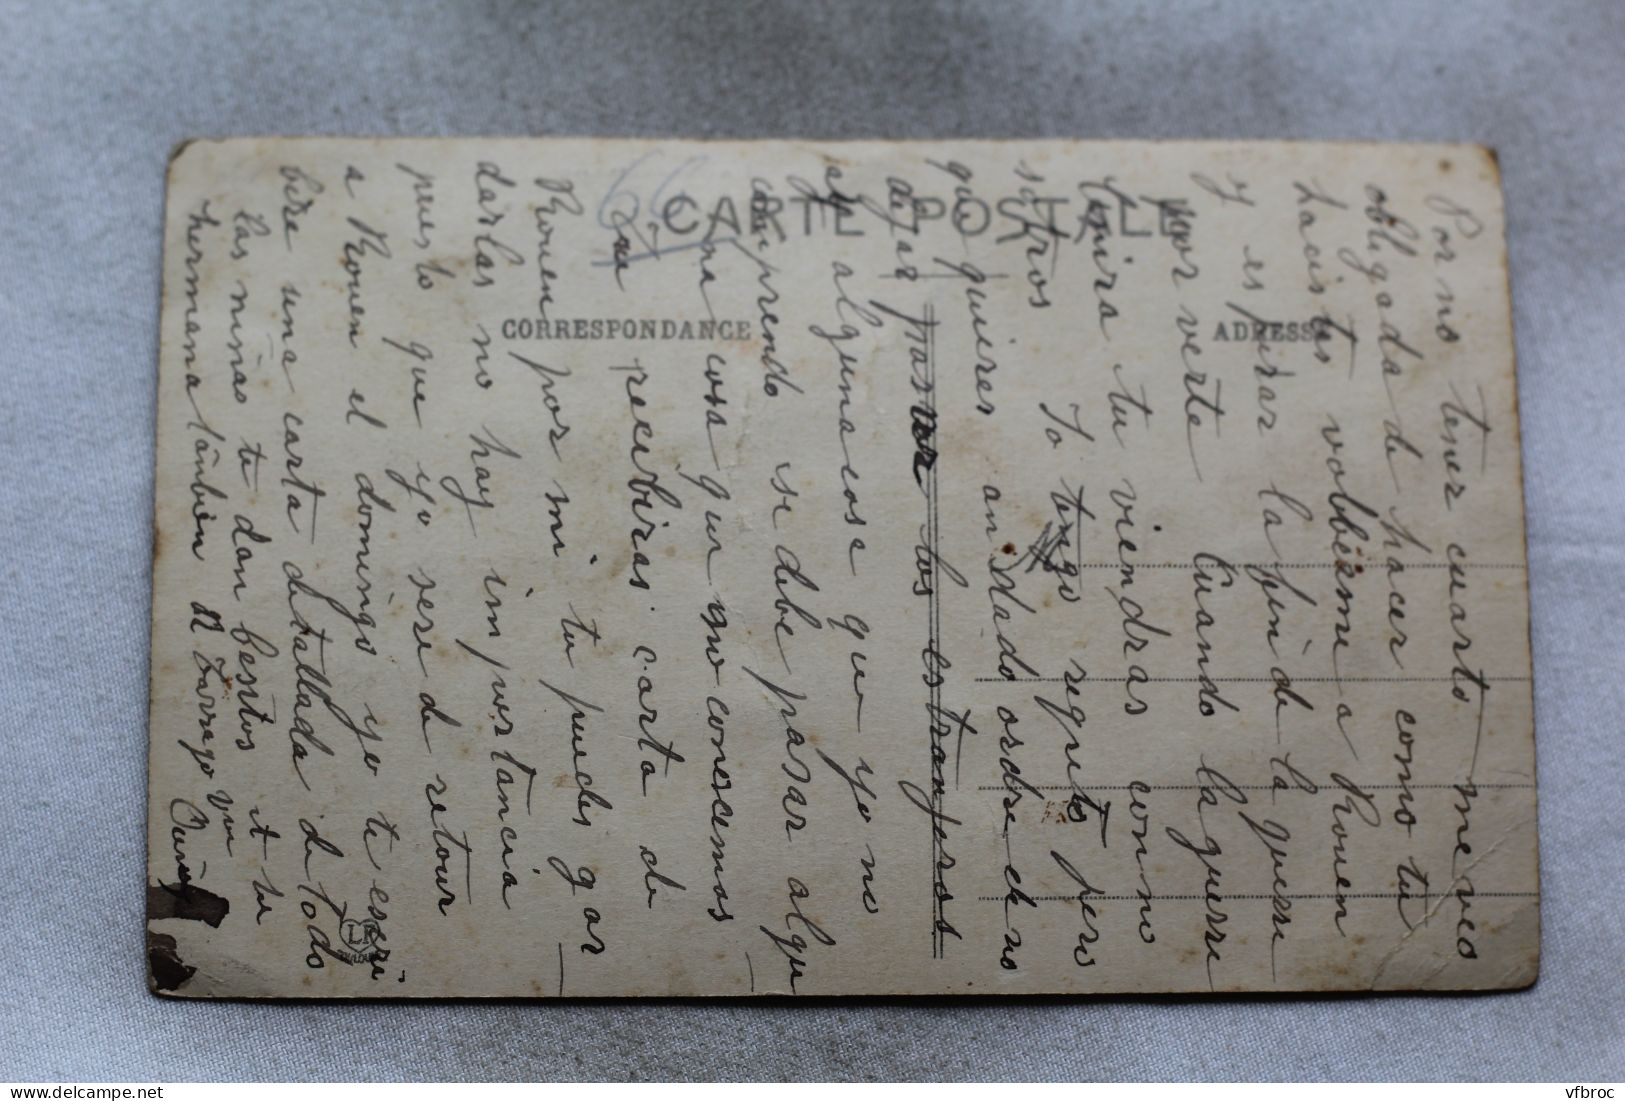 CARTE POSTALE
CORRESPONDANCE
ADRESSE
66
Por no tener cuarto me veo
obligada de hacer como tu
Lacistes volbberme a Rouen
y espirar la fin de la guerri
por verte Cuando la guerri
tu viendras como
sotros Yo tengo regreto pero
que quieres an dado ordre de no
dejar pasar los estranjeros
alguna cosa que yo no
comprendo se debe pasar algu
na cosa que no conocemos
recibiras carta de
Rouen por mi tu puedes gor
darlas no hay importancia
puesto que yo sere de retour
a Rouen el domingo yo te escri
bire una carta detallada de todo
las niñas te dan besitos et tu
hermana tambien
LR
TOULOUSE
vfbroc